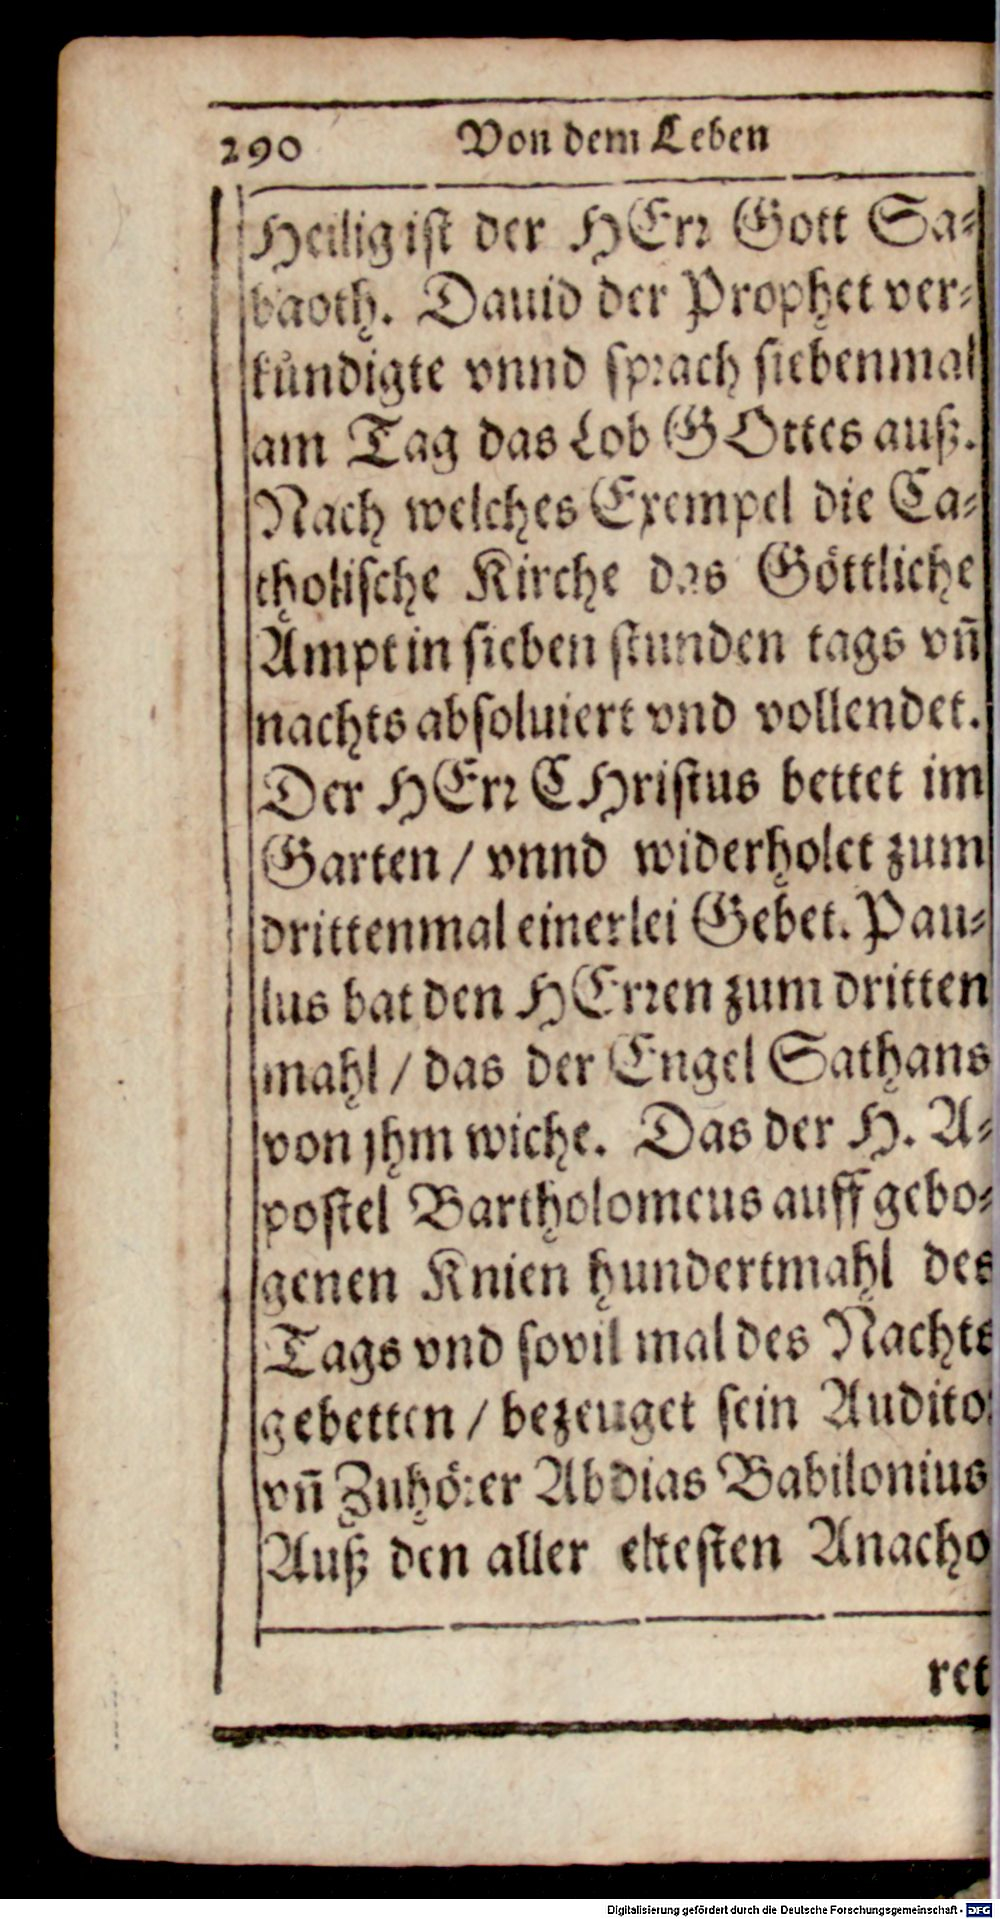 290 Von dem Leben
Heilig ist der HErr Gott Sa-
baoth. Dauid der Prophet ver-
kündigte vnnd sprach siebenmal
am Tag das Lob GOttes auß.
Nach welches Exempel die Ca-
tholische Kirche das Göttliche
Ampt in sieben stunden tags vñ
nachts absoluiert vnd vollendet.
Der HErr CHristus bettet im
Garten / vnnd widerholet zum
drittenmal einerlei Gebet. Pau-
lus bat den HErren zum dritten
mahl / das der Engel Sathans
von jhm wiche. Das der H. A-
postel Bartholomeus auff gebo-
genen Knien hundertmahl des
Tags vnd sovil mal des Nachts
gebetten / bezeuget sein Auditor
vñ Zuhörer Abdias Babilonius
Auß den aller eltesten Anacho
ret
Digitalisierung gefördert durch die Deutsche Forschungsgemeinschaft - DFG